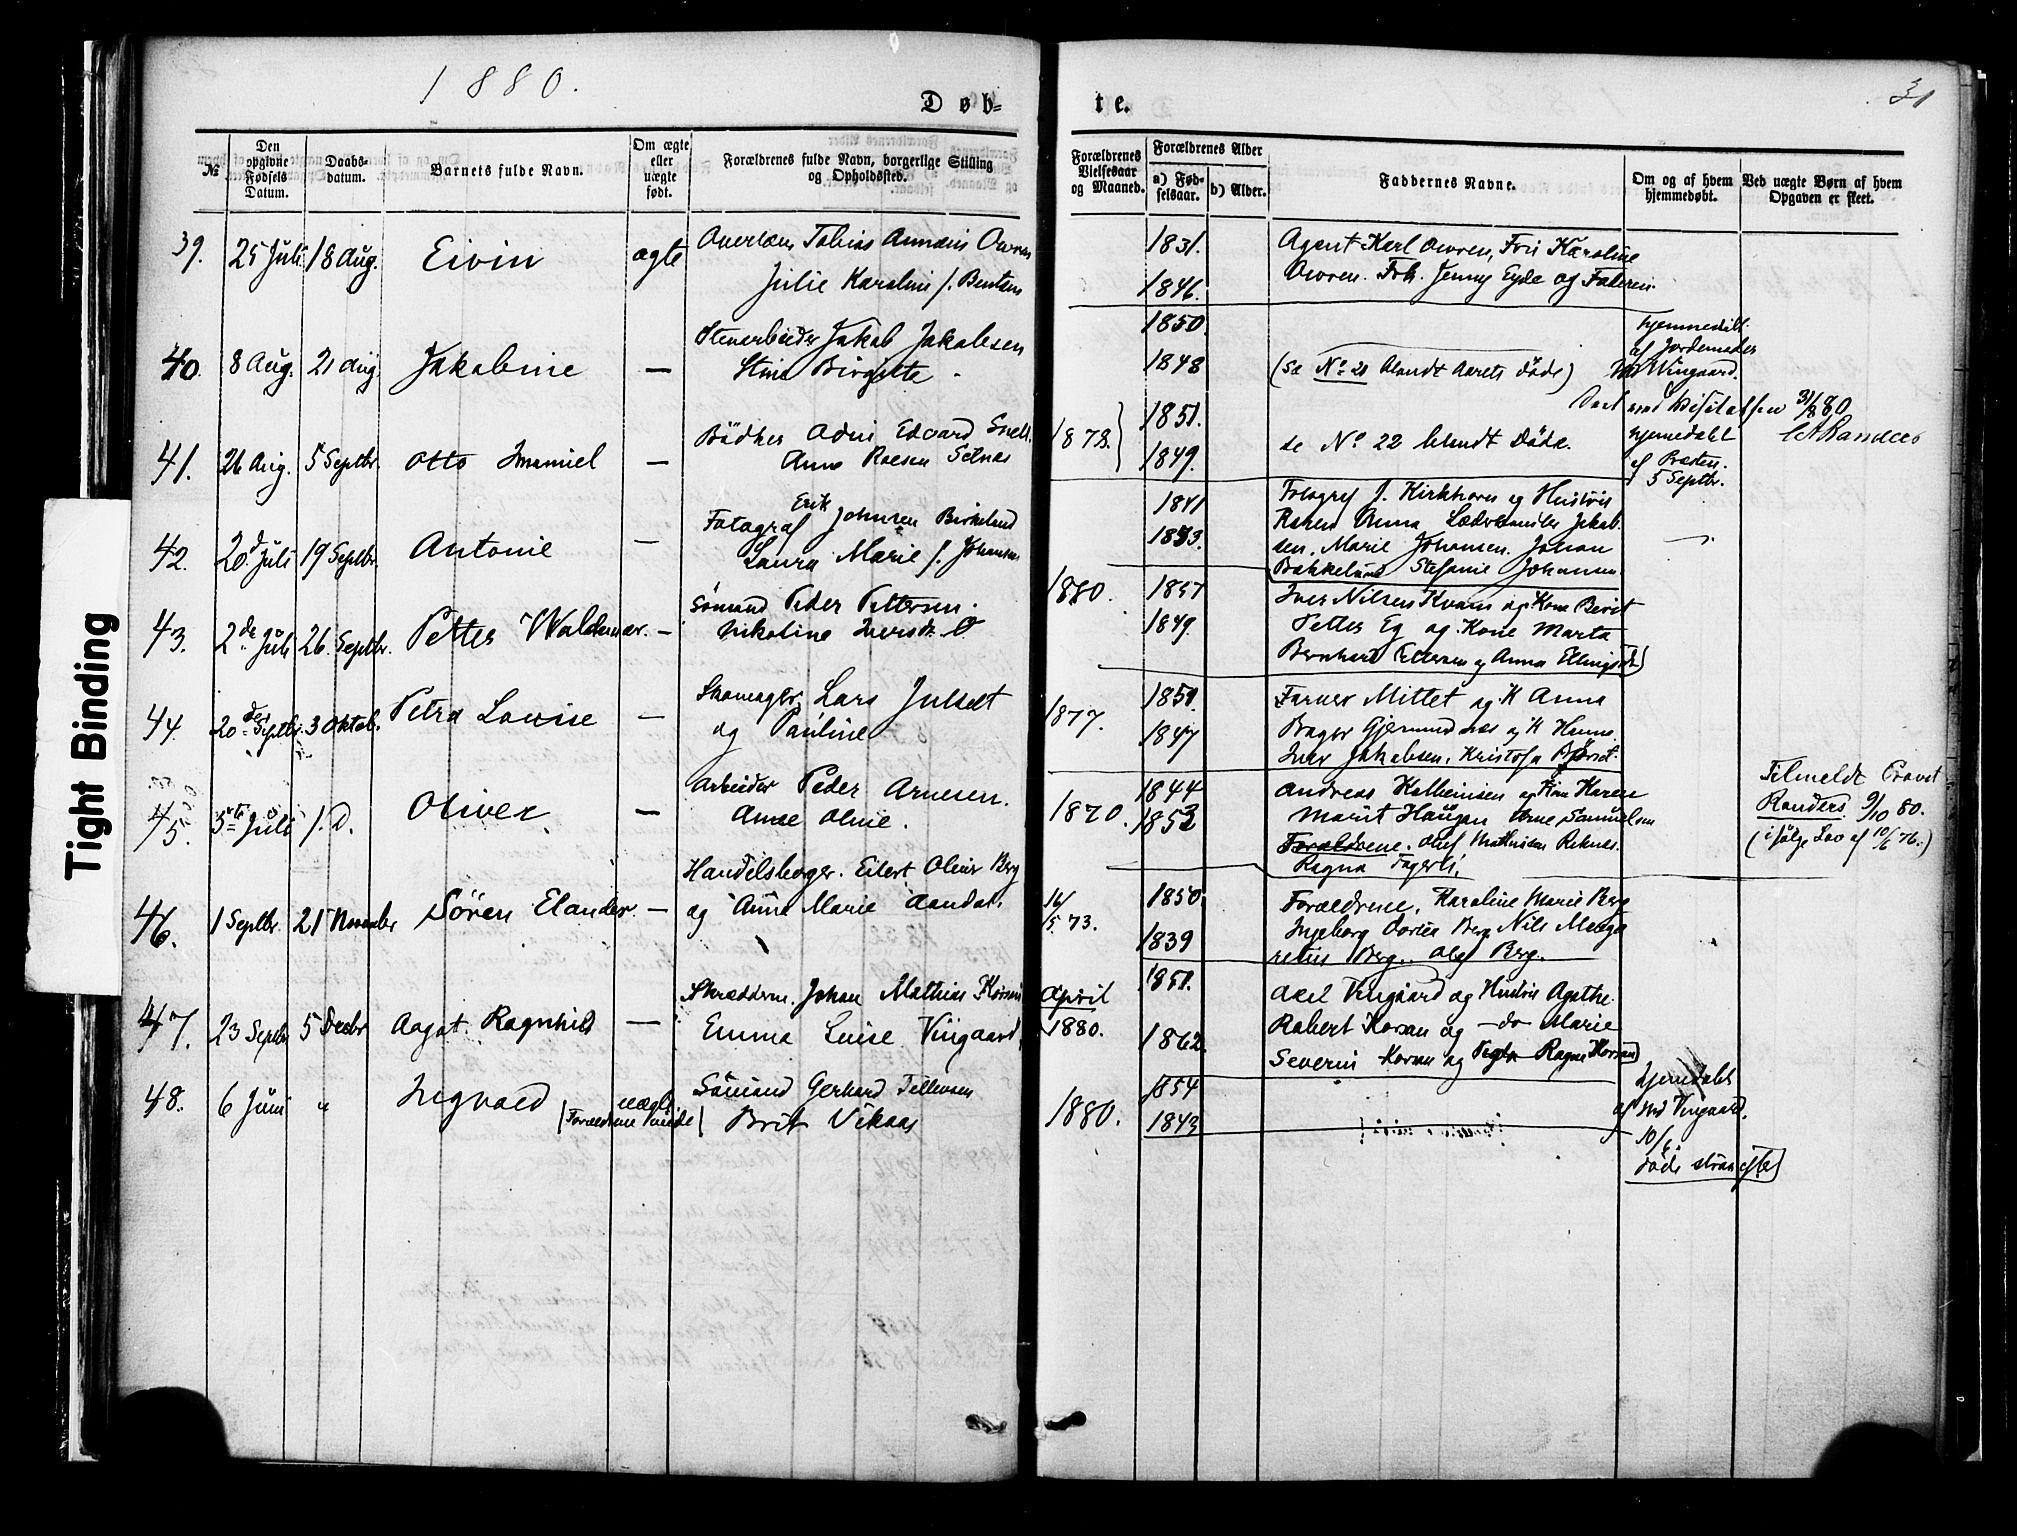 1880.
31
Døb=
te.
№
Den opgivne Fødsels Datum.
Daabs-datum.
Barnets fulde Navn.
Om ægte eller uægte født.
Forældrenes fulde Navn, borgerlige Stilling og Opholdssted.
Forældrenes Vielsesaar og Maaned.
Forældrenes Alder
a) Fødselsaar.
b) Alder.
Faddernes Navne.
Om og af hvem hjemmedøbt.
Ved uægte Børn af hvem Opgaven er skeet.
39. 25 Juli 18 Aug. Eivin ægte
Tobias
Julie Karoline f.
1831.
1846.
Agent Karl Owren, Karoline
Owren. Frk. Jenny Eyde og Faderen.
40. 8 Aug. 21 Aug. Jakobine —
Jakob Jakobsen
Stine Birgitte
1850.
1848
(se No 21 blandt Aarets døde)
hjemmedøbt
af Jordemoder
Wingaard.
31/8 80
41. 26 Aug. 5 Septbr. Otto Imanuel —
Bødker Odin Edvard
Anne Setnes
1878.
1851.
1849.
se No 22 blandt Døde.
hjemmedøbt
af Præsten.
5 Septbr.
42. 20de Juli 19 Septbr. Antonie —
Fotograf Erik Johnsen Birkelund
Laura Marie f. Johansen
1841
1853.
Fotograf J. Kirkhorn og Hustru
Karen Anna Læderhandler Jakob-
sen. Marie Johansen. Johan
Bakkelund Stefanie Johansen.
43. 2de Juli 26. Septbr. Petter Waldemar. —
Sømand Peder Pettersen.
Nikoline Iversdr.
1880.
1857
1849.
Iver Nilsen Kvam og Kone Berit
Petter Eg og Kone Marta
Bernhard Pettersen og Anna
44. 20de Septbr. 3 Oktob. Petra Louise —
Skomager Lars Julset
og Pauline
1877.
1851.
1847
Farver Mittet og K Anna
Bager Gjermundnæs og K Hanna.
Iver Jakobsen. Kristofa
45. 3die Juli f. D. Oliver —
Arbeider Peder Arnesen.
Anne Oline.
1870.
1844
1852
Andreas og Kone Karen
Marit Haugen Arne Samuelsen
Forældrene. Oluf Mathisen Reknes.
Ragna Fagerli.
Tilmeldt Provst
Randers 9/10 80.
(ifølge Lov af 10/6 76.)
46. 1 Septbr. 21 November Søren Elander —
Handelsborger. Eilert Oliver Berg
og Anna Marie
16/5 73.
1850.
1839
Forældrene, Karoline Marie Berg
Ingeborg Berg Nils
Berg. Olaf Berg.
47. 23 Septbr. 5 Decbr Aagot Ragnhild —
Skrædderm. Johan Mathias Korsan
Emma Luise Vingaard.
April
1880.
1851.
1862.
Axel Vingaard og Hustru Agathe.
Robert Korsan og —do Marie
Severin Korsan og Ragna Korsan
48. 6 Juni " Ingvald uægte
(Forældrene
Sømand Gerhard Tellevsen
Brit Vikaas
1880.
1854
1843
hjemdøbt
af Md Vingaard.
10/6.
døde strax efter
Tight Binding